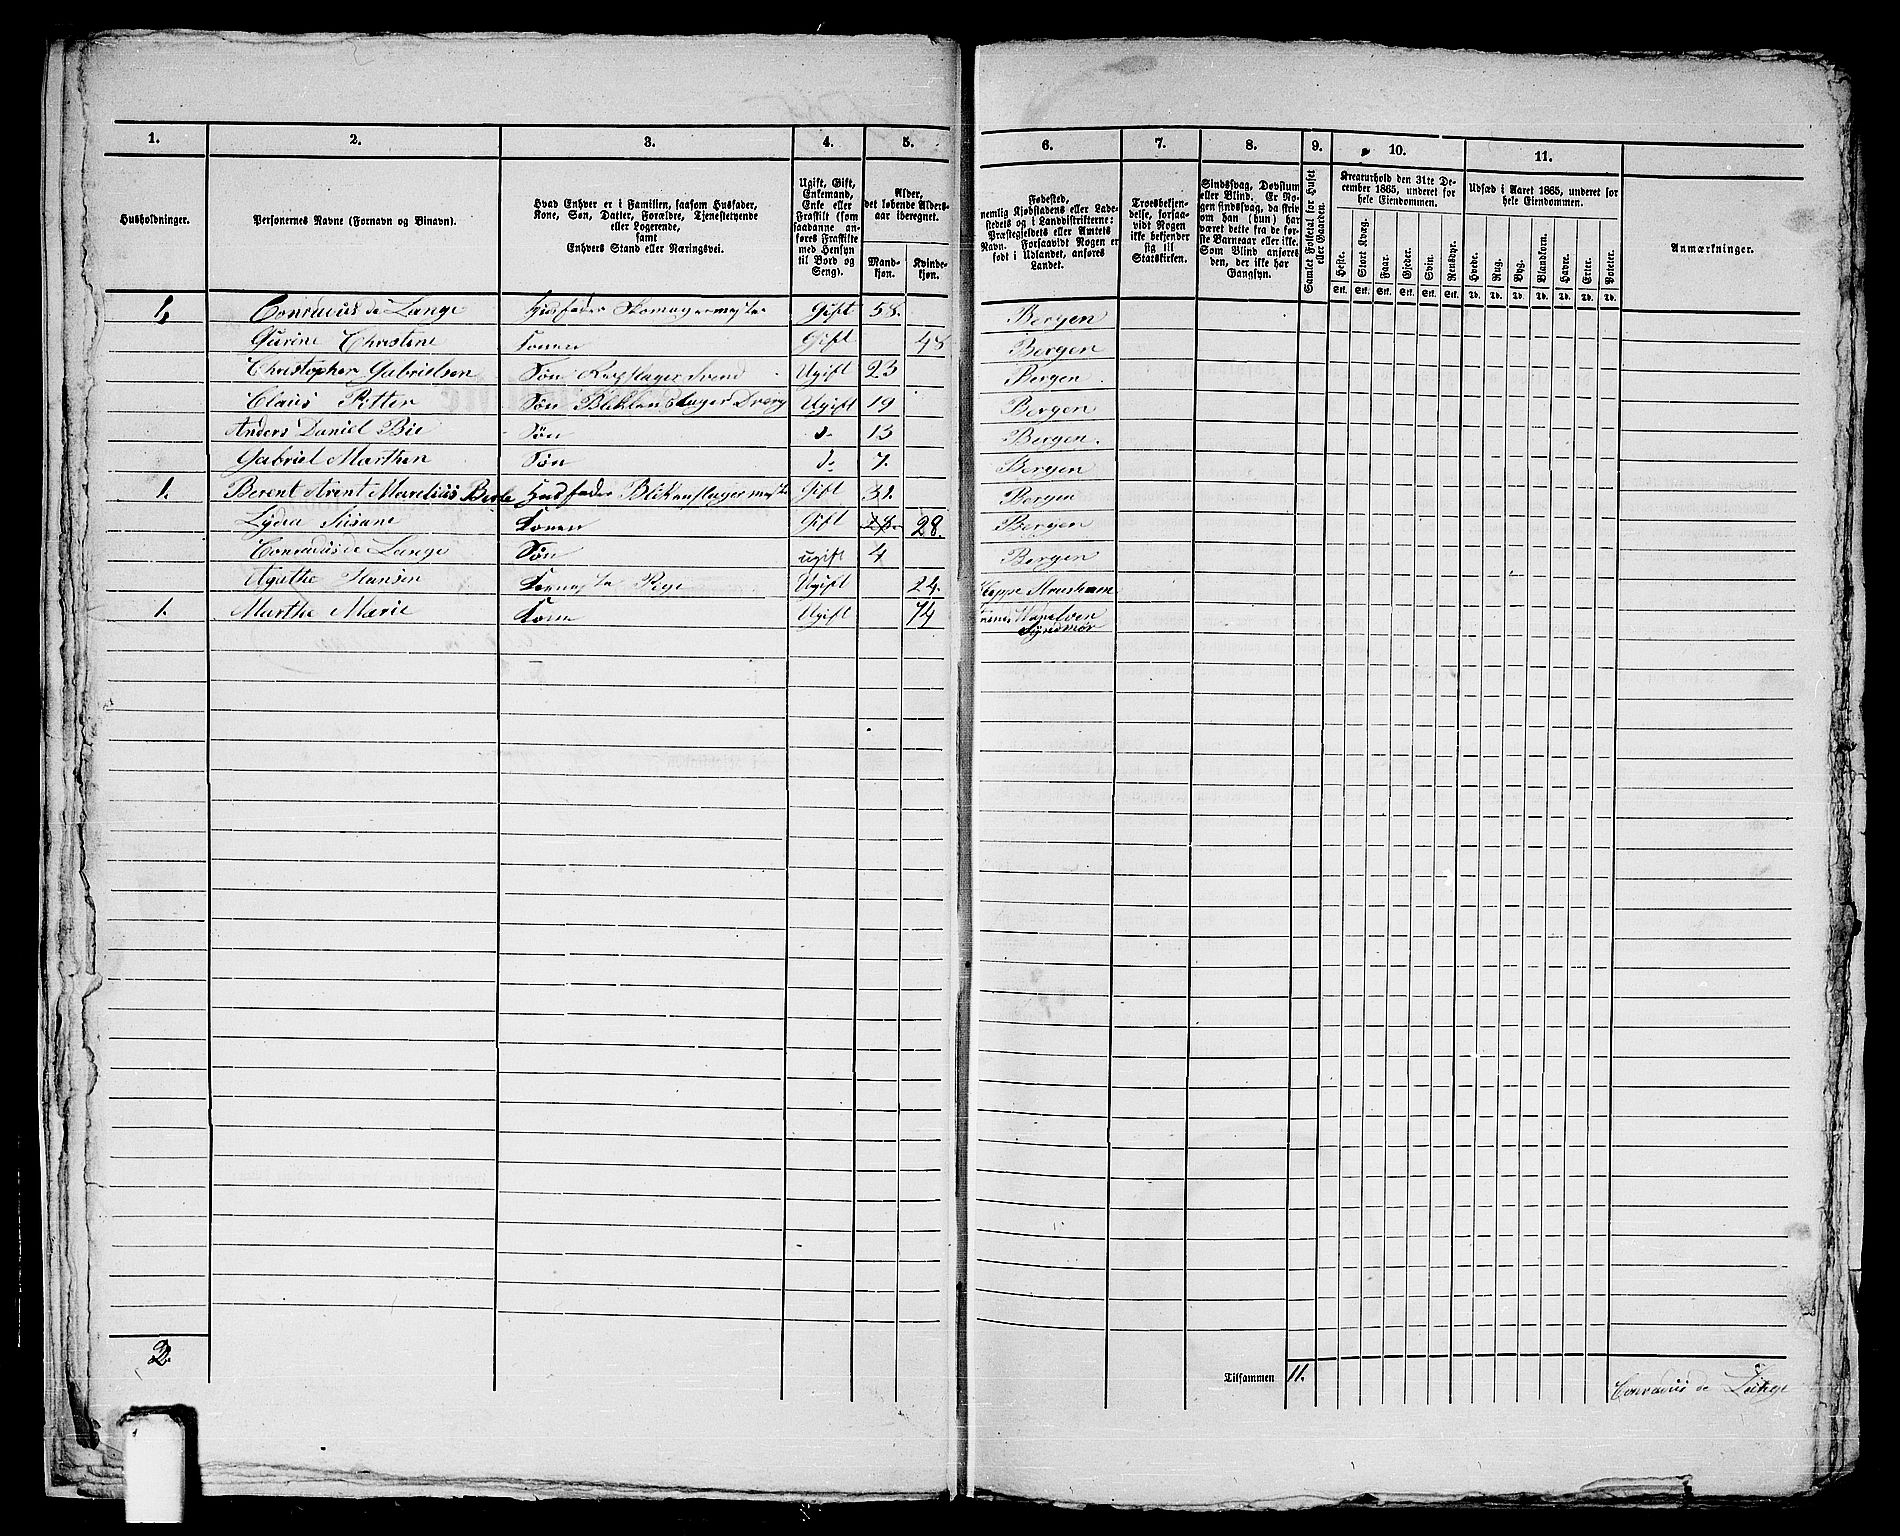 1. 2. 3. 4. 5. 6. 7. 8. 9. 10. 11.
Husholdninger.
Personernes Navne (Fornavn og Binavn).
Hvad Enhver er i Familien, saasom Husfader,
Kone, Søn, Datter, Forældre, Tjenestetyende
eller Logerende,
samt
Enhvers Stand eller Næringsvei.
Ugift, Gift,
Enkemand,
Enke eller
Fraskilt (som
saadanne an-
føres Fraskilte
med Hensyn
til Bord og
Seng).
Alder,
det løbende Alders-
aar iberegnet.
Mand-
kjøn.
Kvinde-
kjøn.
Fødested,
nemlig Kjøbstadens eller Lade-
stedets og i Landdistrikterne:
Præstegjeldets eller Amtets
Navn. Forsaavidt Nogen er
født i Udlandet, anføres
Landet.
Troesbekjen-
delse, forsaa-
vidt Nogen
ikke bekjender
sig til
Statskirken.
Sindssvag, Døvstum
eller Blind. Er No-
gen sindssvag, da skriv
om han (hun) har
været dette fra de før-
ste Barneaar eller ikke.
Som Blind anføres
den, der ikke har
Gangsyn.
Samlet Folketal for Huset
eller Gaarden.
Kreaturhold den 31te De-
cember 1865, underet for
hele Eiendommen.
Heste. Stort Kvæg. Faar. Gjeder. Svin. Rensdyr.
Stk. Stk. Stk. Stk. Stk. Stk.
Udsæd i Aaret 1865, underet for
hele Eiendommen.
Hvede. Rug. Byg. Blandkorn. Havre. Erter. Poteter.
Td. Td. Td. Td. Td. Td. Td.
Anmærkninger.
1. Conradus de Lange Husfader Skomagermester Gift 58. Bergen
Gurine Christine Konen Gift 48 Bergen
Christopher Gabrielsen Søn Ugift 23 Bergen
Claus Petter Søn Ugift 19 Bergen
Anders Daniel Bie Søn d. 13 Bergen.
Gabriel Marthen Søn d. 7. Bergen
1. Berent Arent Marelius Husfader Gift 31. Bergen
Lydia Susane Konen Gift 28. Bergen
Conradus de Lange Søn ugift 4 Bergen
Agethe Hansen Pige Ugift 24.
1. Marthe Marie Kone Ugift 74
Syndmør
2.
Tilsammen 11.
Conradus de Lange